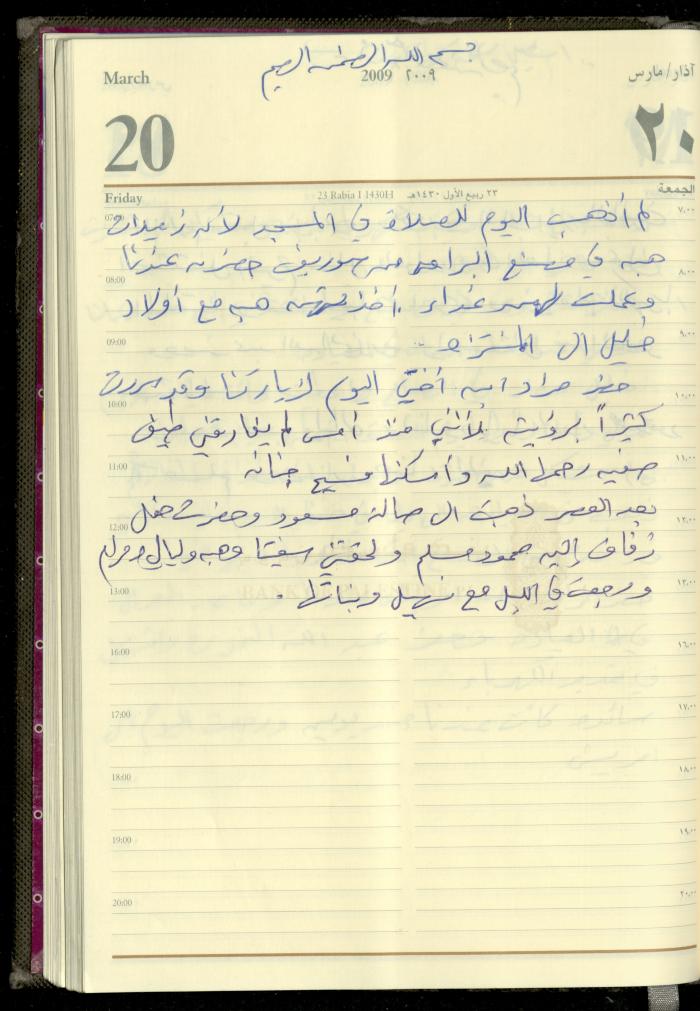 بسم الله الرحمن الرحيم
March 2009 ٢٠٠٩ آذار/مارس
20 ٢٠
Friday 23 Rabia I 1430H ٢٣ ربيع الأول ١٤٣٠هـ الجمعة
لم أذهب اليوم للصلاة في المسجد لأنه زميلات
هبه في مصنع البراعم من حضرن عندنا
وعملت لهن غداء. أخذتهم هبه مع أولاد
خليل ال المنتزه.
حضر مراد ابن أختي اليوم لزيارتنا وقد سررت
كثيراً برؤيته لأنني منذ أمس لم يفارقني طيف
صفيه رحمها الله وأسكنها فسيح جنانه
بعد العصر ذهبت ال صالة مسعود وحضرت حفل
زفاف محمود مسلم ولحقتني وهبه وليالي ومرام
ورجعت في الليل مع سهيل وبناتها.
07:00 ٧،٠٠
08:00 ٨،٠٠
09:00 ٩،٠٠
10:00 ١٠،٠٠
11:00 ١١،٠٠
12:00 ١٢،٠٠
13:00 ١٣،٠٠
16:00 ١٦،٠٠
17:00 ١٧،٠٠
18:00 ١٨،٠٠
19:00 ١٩،٠٠
20:00 ٢٠،٠٠